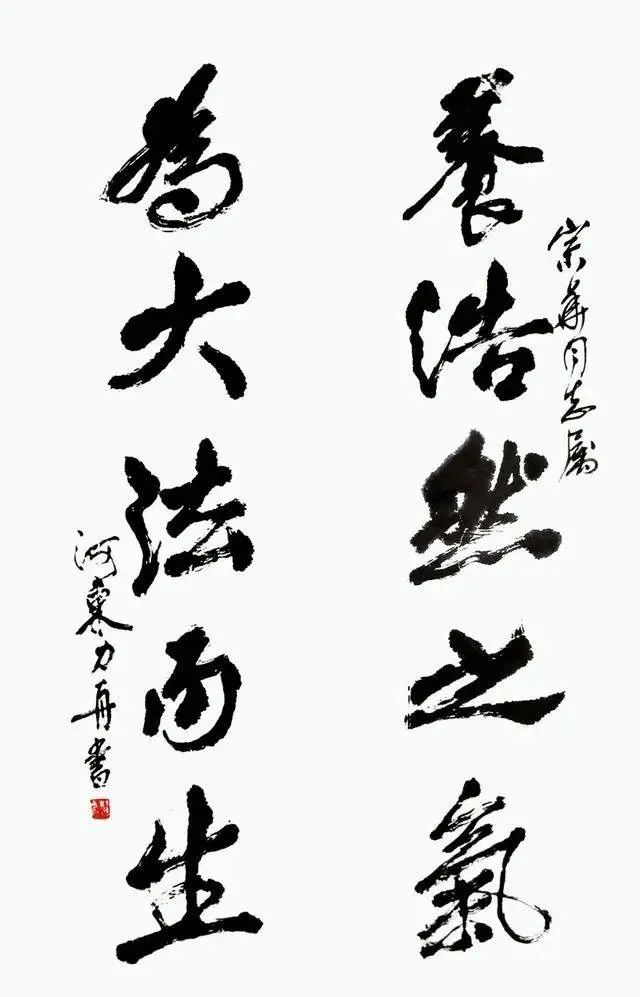 宗華同志屬
養浩然之氣
為大法而生
河東力舟書